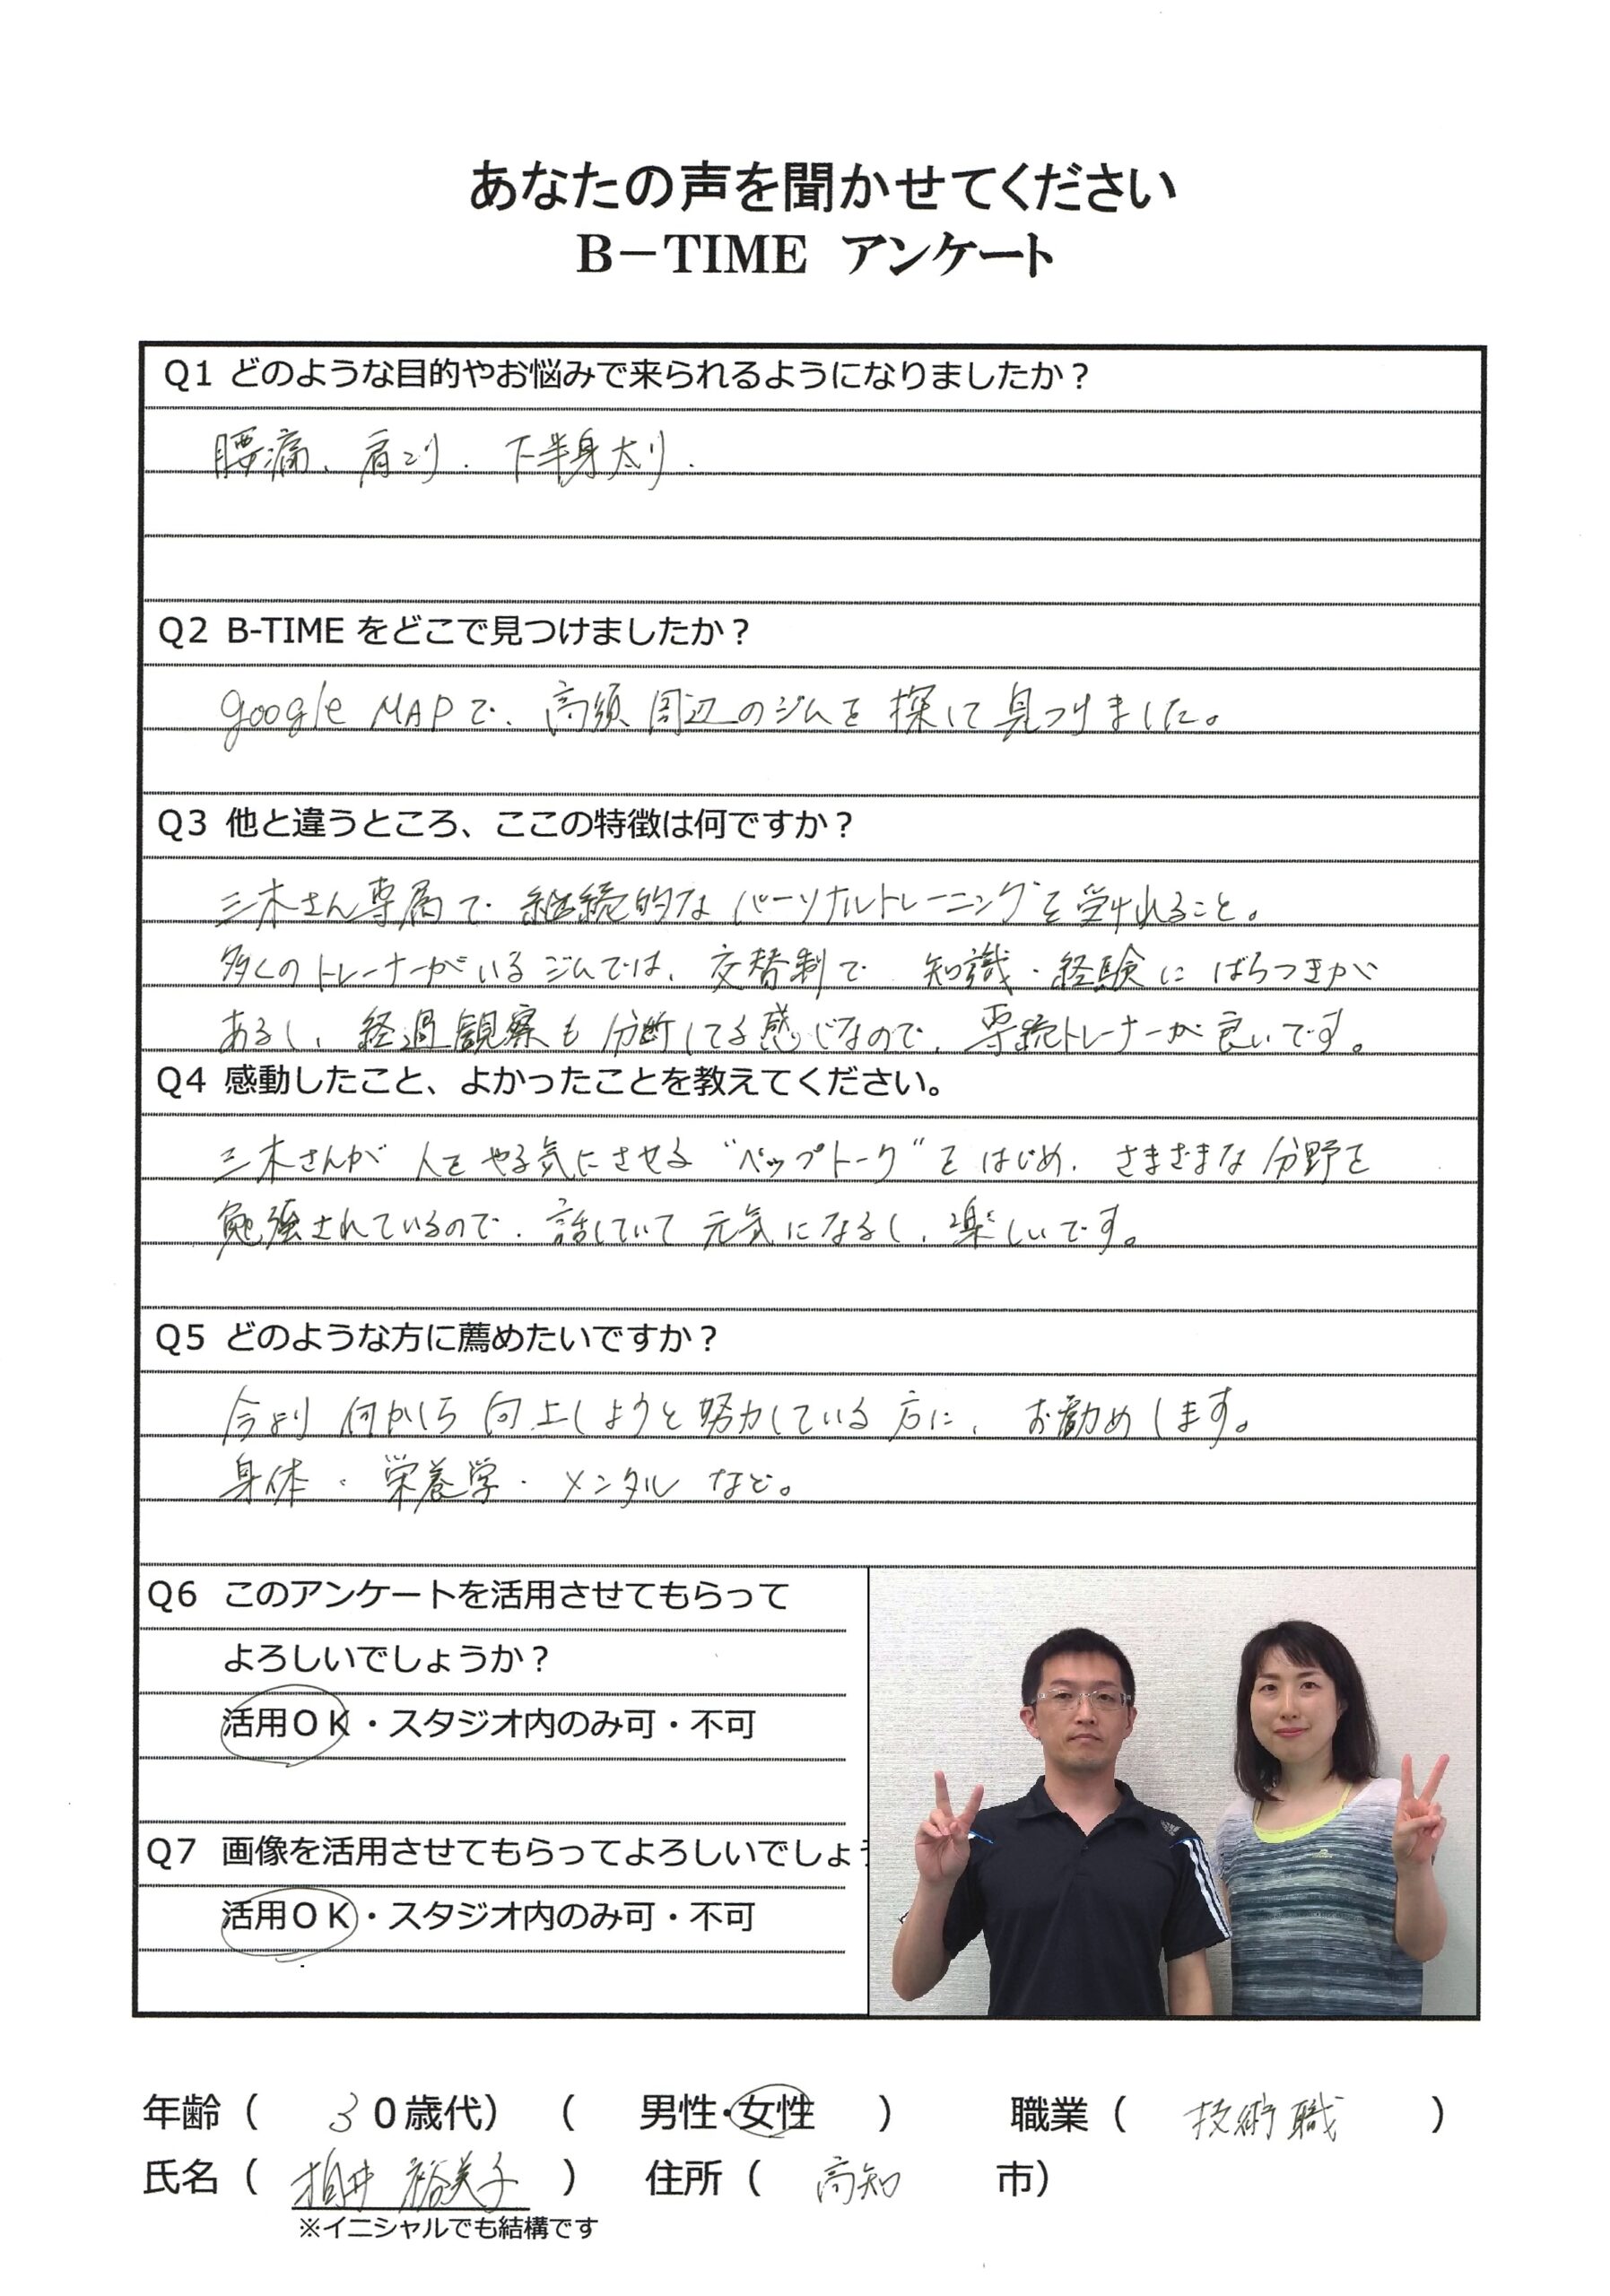 あなたの声を聞かせてください
B－TIME アンケート
Q1 どのような目的やお悩みで来られるようになりましたか？
腰痛、肩こり、下半身太り．
Q2 B-TIME をどこで見つけましたか？
google MAPで、高須周辺のジムを探して見つけました。
Q3 他と違うところ、ここの特徴は何ですか？
三木さん専属で継続的なパーソナルトレーニングを受けれること。
多くのトレーナーがいるジムでは、交替制で 知識・経験にばらつきが
あるし、経過観察も分断してる感じなので、専続トレーナーが良いです。
Q4 感動したこと、よかったことを教えてください。
三木さんが 人をやる気にさせる“ペップトーク”をはじめ、さまざまな分野を
勉強されているので、話していて元気になるし、楽しいです。
Q5 どのような方に薦めたいですか？
今より何かしら向上しようと努力している方に、お勧めします。
身体・栄養学・メンタルなど。
Q6 このアンケートを活用させてもらって
よろしいでしょうか？
活用ＯＫ・スタジオ内のみ可・不可
Q7 画像を活用させてもらってよろしいでしょ
活用ＯＫ・スタジオ内のみ可・不可
年齢（ 30歳代）（ 男性・女性 ） 職業（ 技術職 ）
氏名（ 柏井 裕美子 ） 住所（ 高知 市）
※イニシャルでも結構です